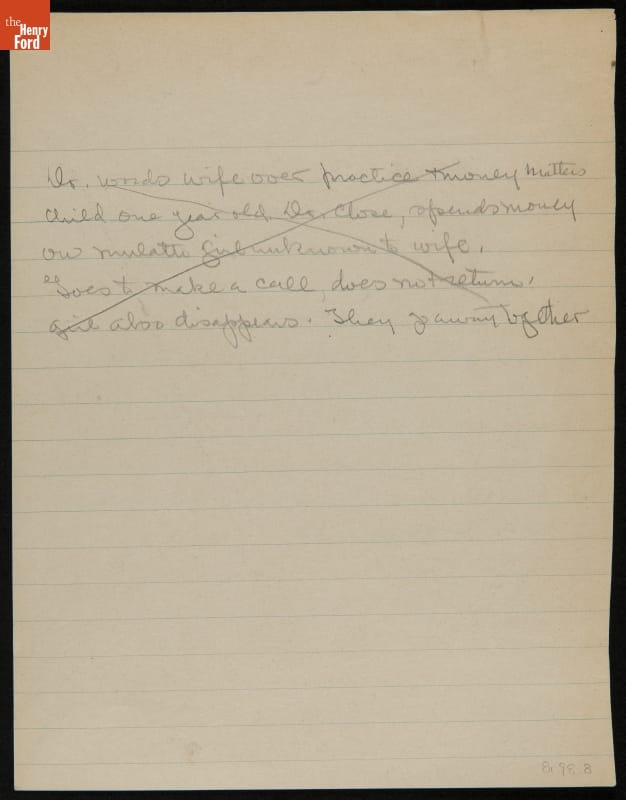 the
Henry
Ford
Dr. words wife over practice + money matters
child one year old. Dr. close, spends money
on mulatto girl unknown to wife.
Goes to make a call, does not return,
girl also disappears. They go away together